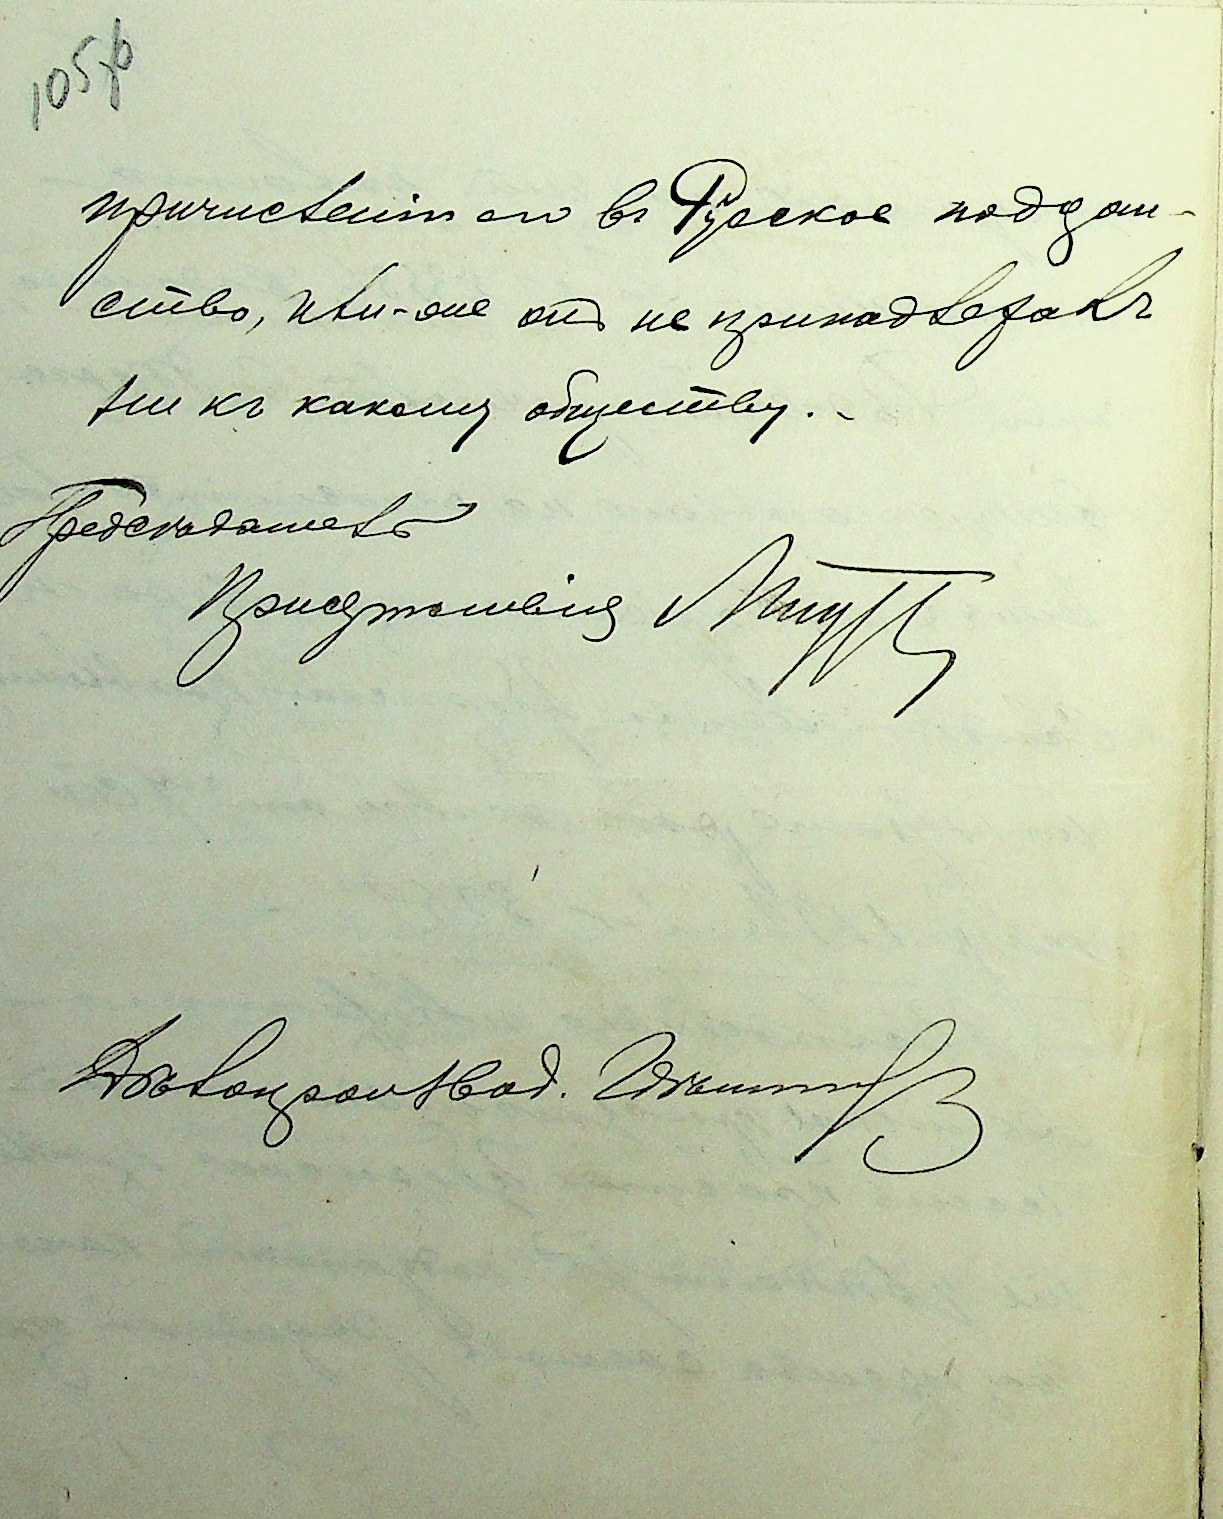 105об
причисленіи его въ Русское поддан-
ство, или-же онъ не принадлежалъ
ни къ какому обществу.
Предсѣдатель
Присутствія
Дѣлопроизвод.